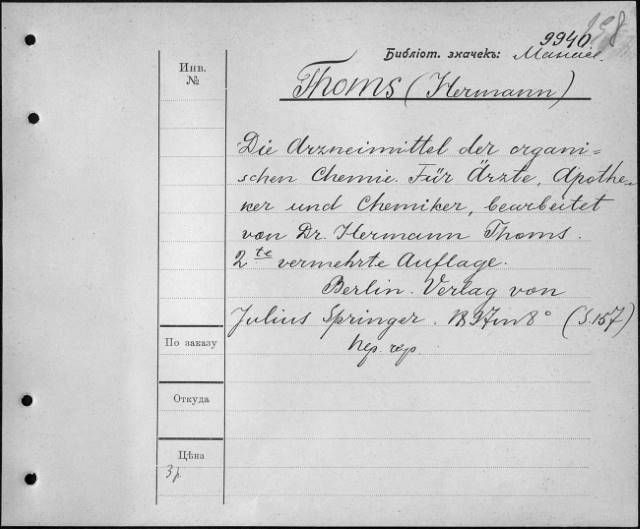 9940.
Библіот. значекъ:
Инв.
№
Thoms (Hermann)
Die Arzneimittel der organi=
schen Chemie. Für Ärzte, Apothe-
ker und Chemiker, bearbeitet
von Dr. Hermann Thoms.
2te vermehrte Auflage.
Berlin. Verlag von
Julius Springer. 1897 in 8° (S.157)
По заказу
Откуда
Цѣна
3 р.